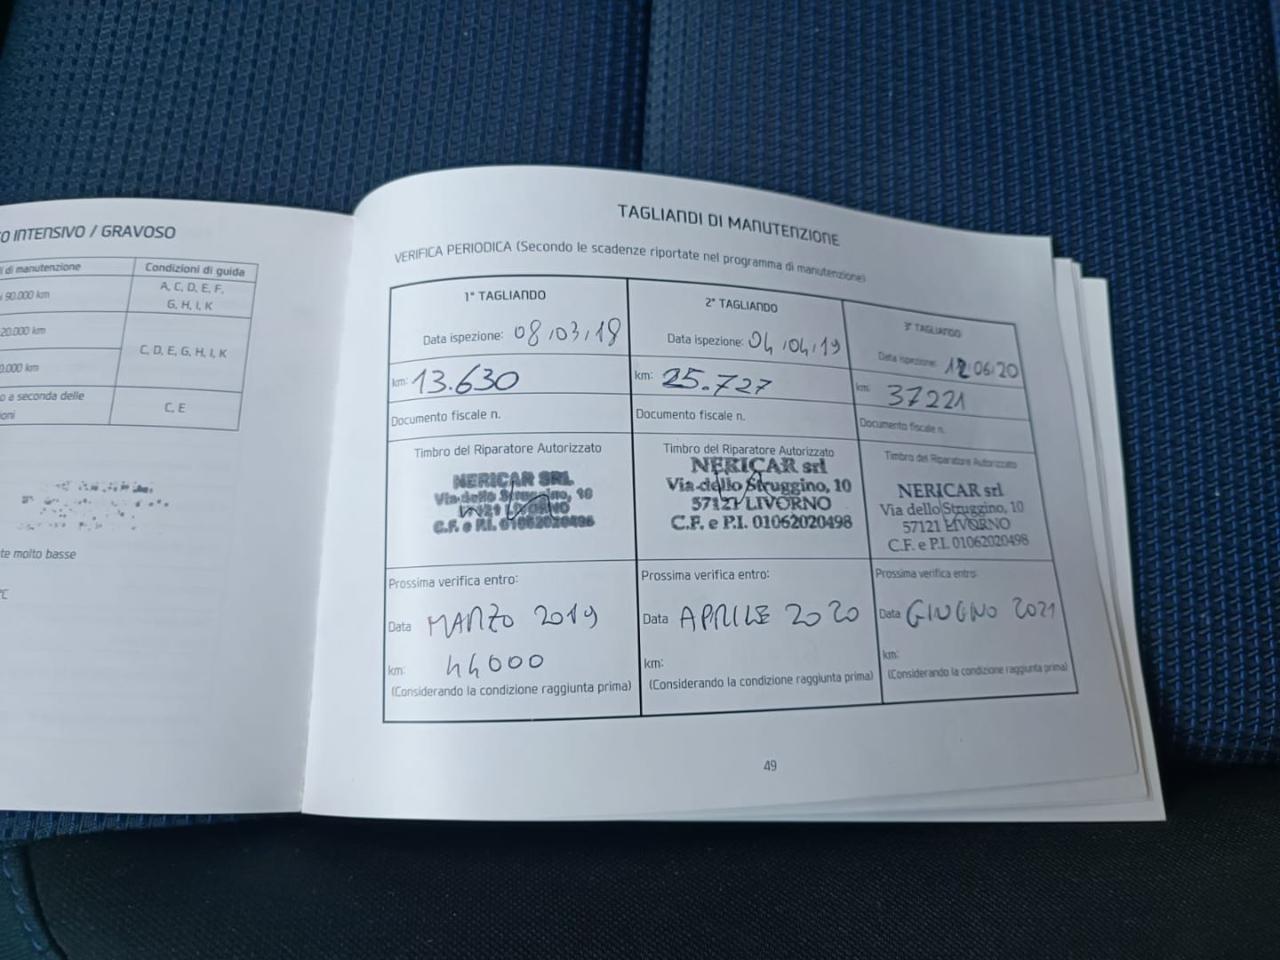 O INTENSIVO / GRAVOSO
di manutenzione
Condizioni di guida
90.000 km
A, C, D, E, F,
G, H, I, K
20.000 km
C, D, E, G, H, I, K
0.000 km
o a seconda delle
oni
C, E
te molto basse
°C
TAGLIANDI DI MANUTENZIONE
VERIFICA PERIODICA (Secondo le scadenze riportate nel programma di manutenzione)
1° TAGLIANDO
Data ispezione: 08/03/18
km: 13.630
Documento fiscale n.
Timbro del Riparatore Autorizzato
NERICAR SRL
Via dello Struggino, 10
57121 LIVORNO
C.F. e P.I. 01062020498
Prossima verifica entro:
Data MARZO 2019
km: 44000
(Considerando la condizione raggiunta prima)
2° TAGLIANDO
Data ispezione: 04/04/19
km: 25.727
Documento fiscale n.
Timbro del Riparatore Autorizzato
NERICAR srl
Via dello Struggino, 10
57121 LIVORNO
C.F. e P.I. 01062020498
Prossima verifica entro:
Data APRILE 2020
km:
(Considerando la condizione raggiunta prima)
3° TAGLIANDO
Data ispezione: 12.06.20
km: 37221
Documento fiscale n.
Timbro del Riparatore Autorizzato
NERICAR srl
Via dello Struggino, 10
57121 LIVORNO
C.F. e P.I. 01062020498
Prossima verifica entro:
Data GIUGNO 2021
km:
(Considerando la condizione raggiunta prima)
49